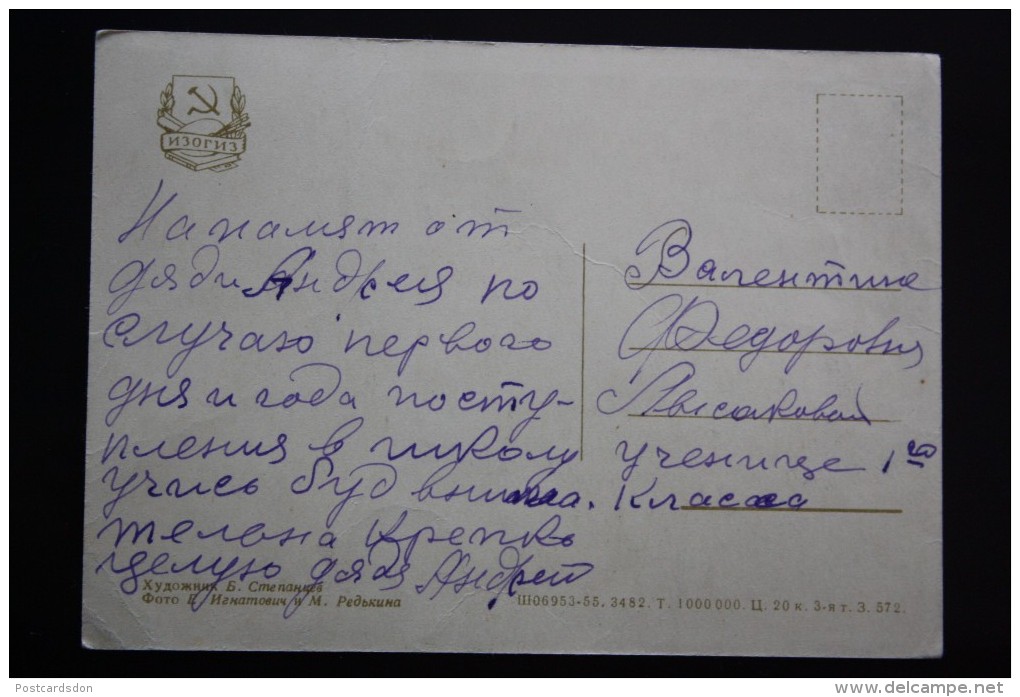 ИЗОГИЗ
На памят от
дяди Андрея по
случаю первого
дня и года посту-
пления в школу
учись буд внима.
телона крепко
целую дядя Андрей
Валентине
Федоровня
Лысаковой
ученице 1го
класса
Художник Б. Степанцев
Фото Б. Игнатович и М. Редькина
Ш06953-55. 3482. Т. 1000000. Ц. 20 к. 3-я т. З. 572.
Postcardsdon
www.delcampe.net